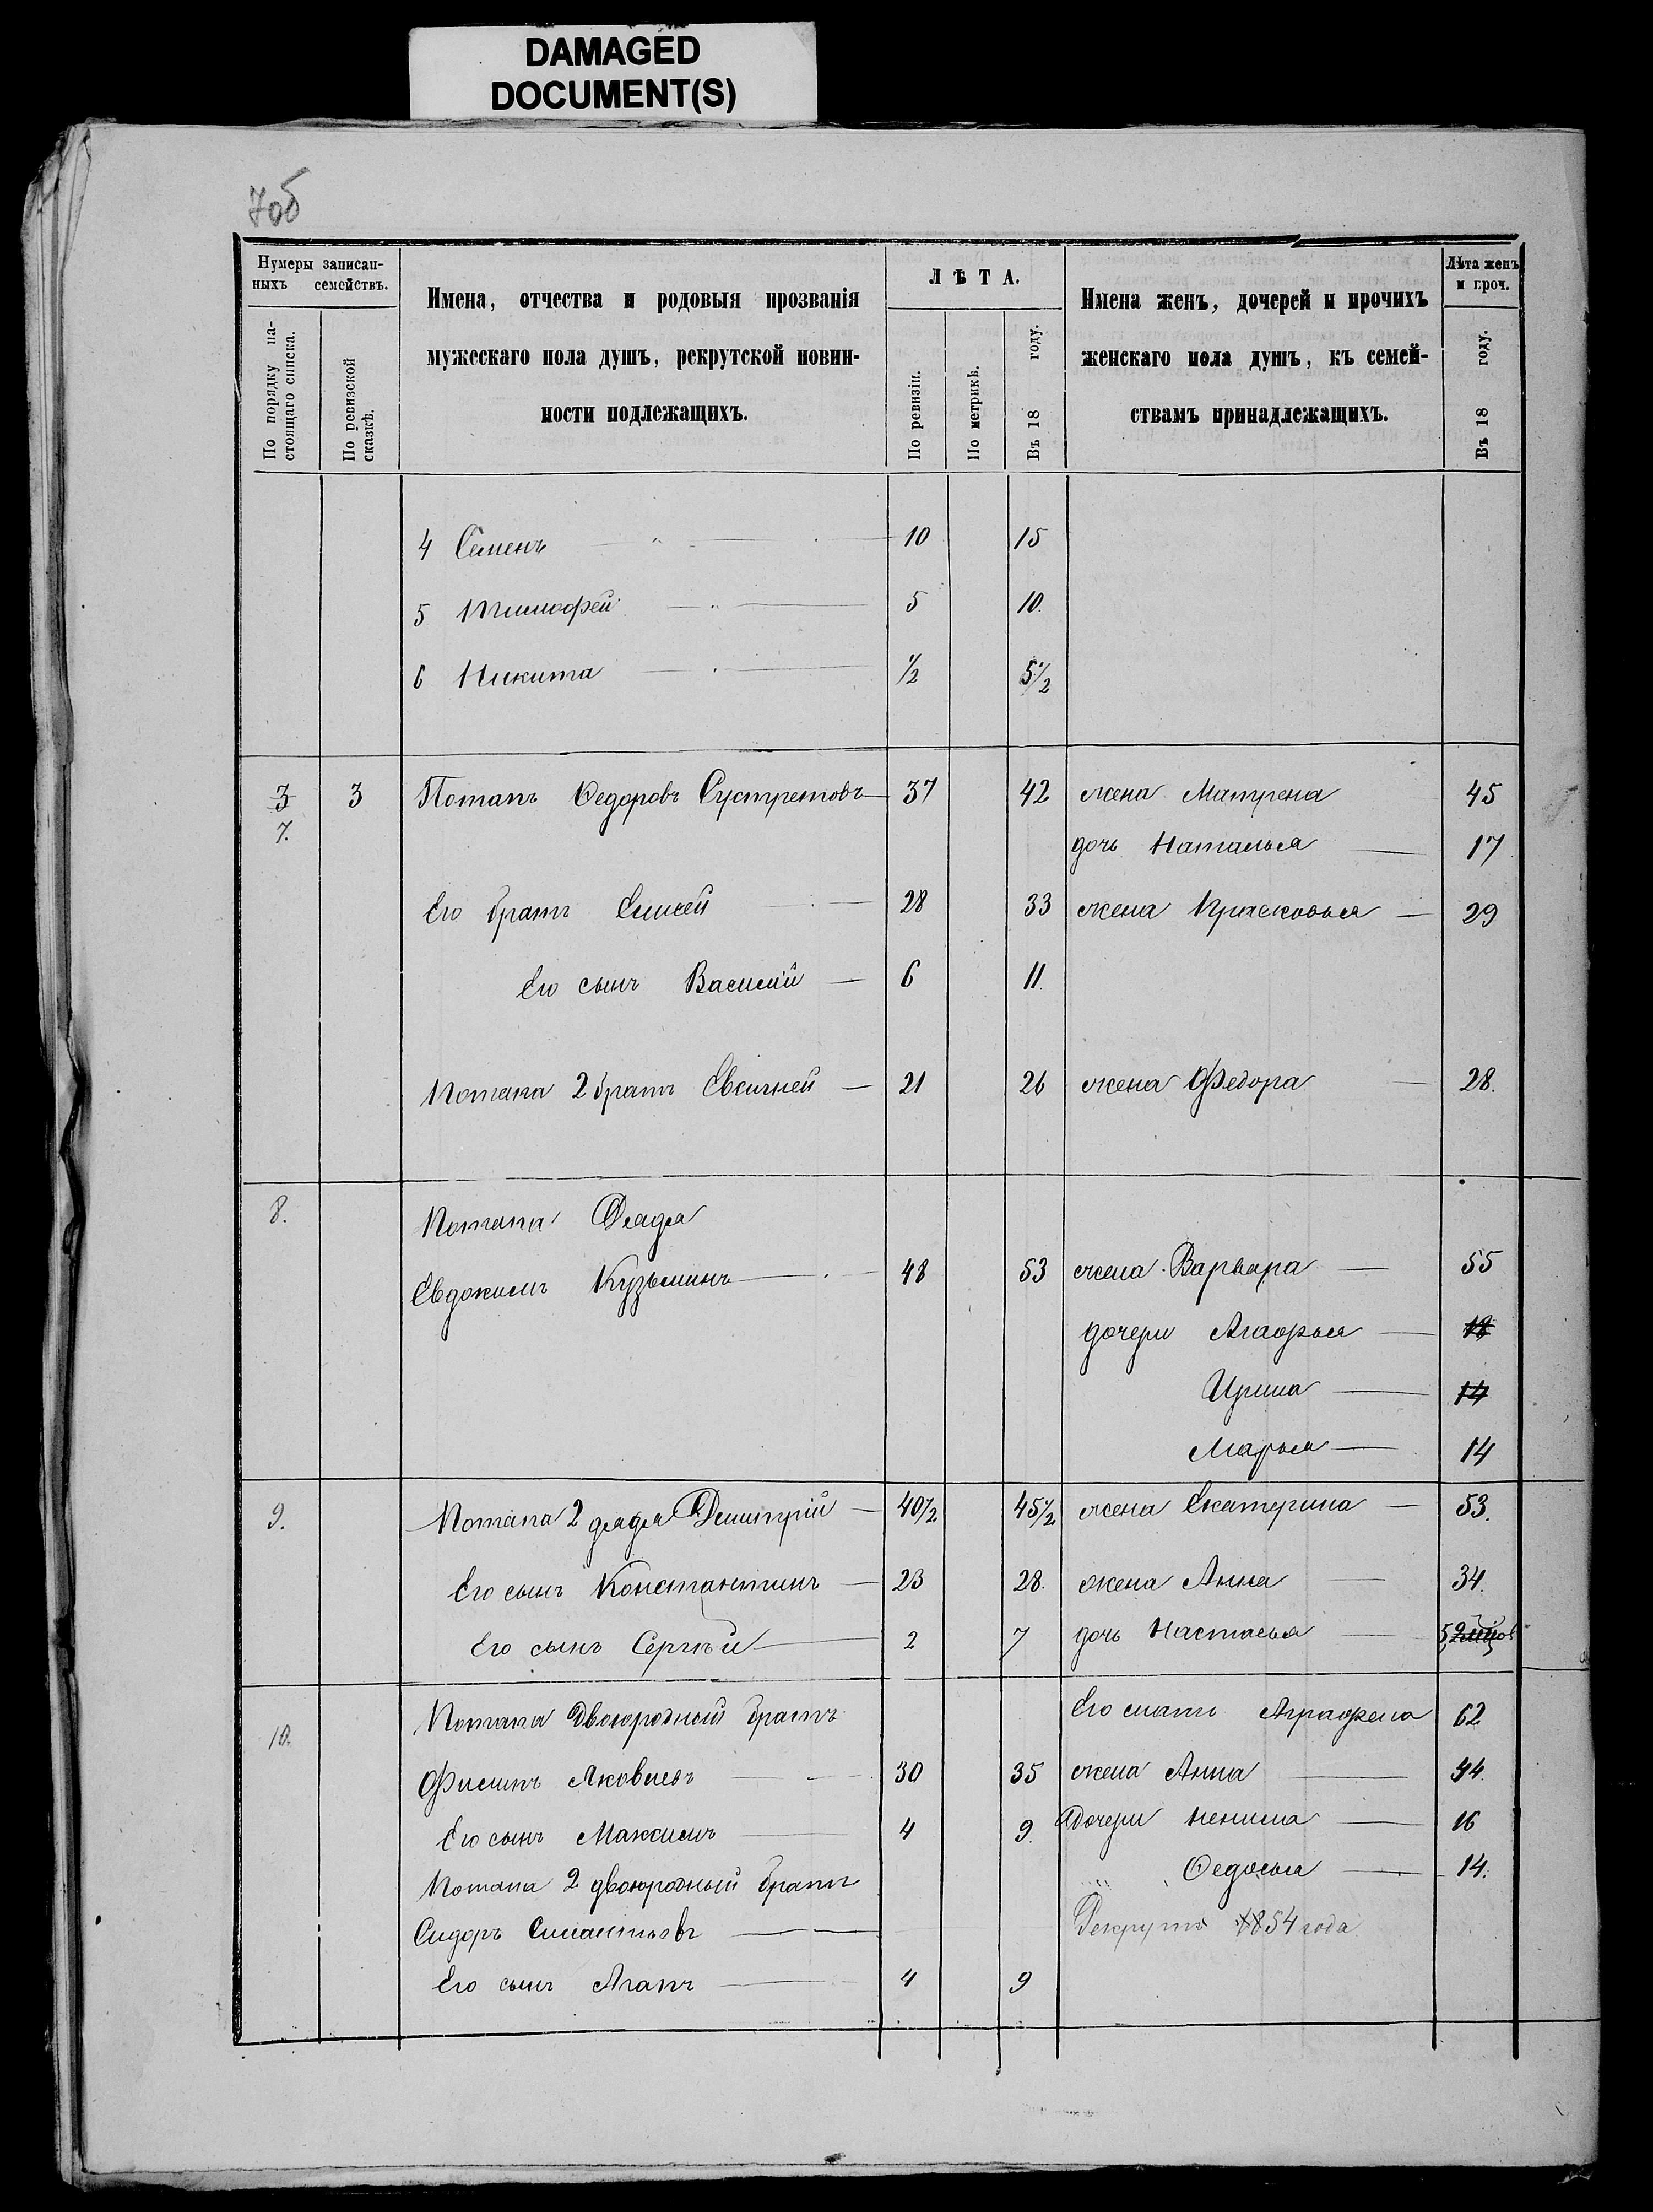 DAMAGED
DOCUMENT(S)
70б
Нумеры записан-
ныхъ семействъ.
По порядку на-
стоящаго списка.
По ревизской
сказкѣ.
Имена, отчества и родовыя прозванія
мужескаго пола душъ, рекрутской повин-
ности подлежащихъ.
ЛѢТА.
По ревизіи.
По метрикѣ.
Въ 18 году.
Имена женъ, дочерей и прочихъ
женскаго пола душъ, къ семей-
ствамъ принадлежащихъ.
Лѣта женъ
и проч.
Въ 18 году.
4 Семенъ 10 15
5 Тимофей 5 10.
6 Никита ½ 5½
3 3 Потапъ Ѳедоровъ 37 42 жена Матрена 45
7. дочь Наталья 17
Его братъ Елисей 28 33 жена Прасковья 29
Его сынъ Василій 6 11.
Потапа 2 братъ Евсигней 21 26 жена Федора 28.
8. Потапа Дядя
Евдокимъ Кузьминъ 48 53 жена Варвара 55
дочери Агафья 18
Ирина 14
Марья 14
9. Потапа 2 дядя Димитрій 40½ 45½ жена Екатерина 53.
Его сынъ Константинъ 23 28. жена Анна 34.
Его сынъ Сергѣй 2 7 дочь Настасья 5
Потапа Двоюродный братъ Его мать Аграфена 62
10. Филипъ Яковлевъ 30 35 жена Анна 44.
Его сынъ Максимъ 4 9. Дочери 16
Потапа 2 двоюродный братъ Ѳедосья 14.
Сидоръ Рекрутъ 1854 года
Его сынъ Агапъ 4 9